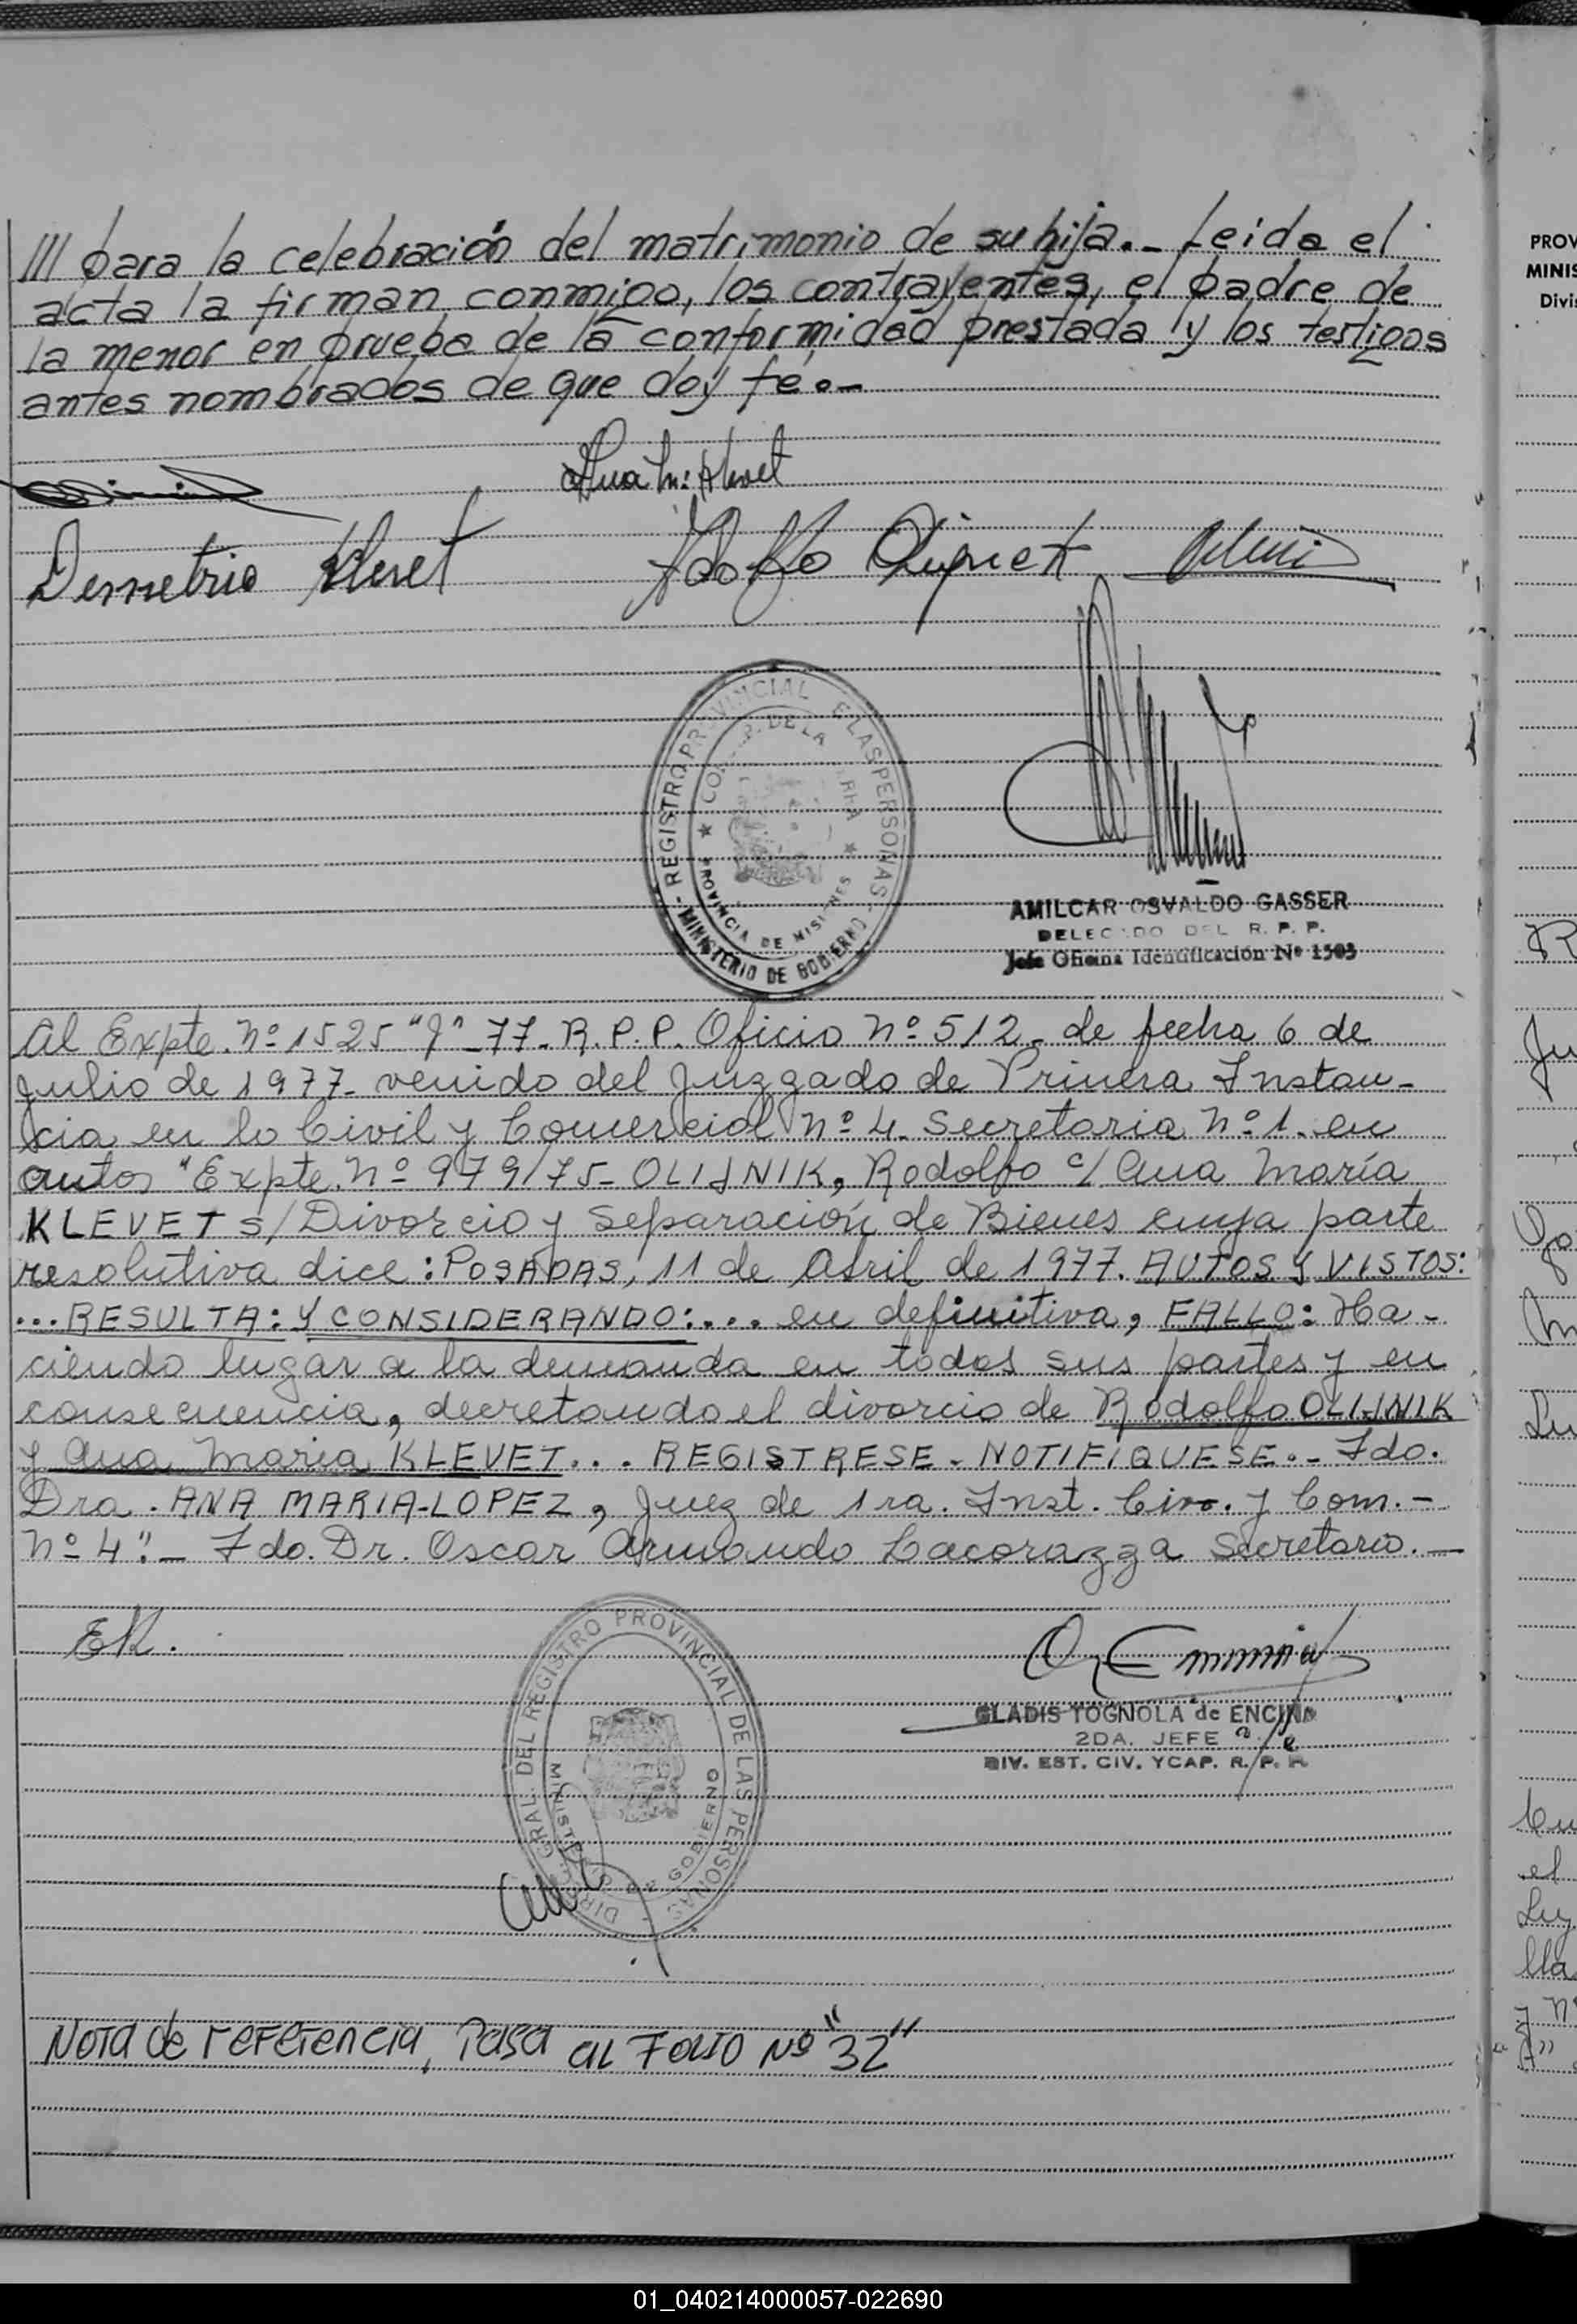 /// para la celebración del matrimonio de su hija.- Leida el
acta la firman conmigo, los contrayentes, el padre de
la menor en prueba de la conformidad prestada y los testigos
antes nombrados de que doy fé.-
Ana M. Klevet
Demetrio Klevet
REGISTRO PROVINCIAL DE LAS PERSONAS
MINISTERIO DE GOBIERNO
PROVINCIA DE MISIONES
AMILCAR OSVALDO GASSER
DELEGADO DEL R. P. P.
Jefe Oficina Identificación Nº 1503
Al Expte. Nº 1525 "J" -77- R.P.P. Oficio Nº 512- de fecha 6 de
Julio de 1977- venido del Juzgado de Primera Instan-
cia en lo Civil y Comercial Nº 4- Secretaria Nº 1. en
autos "Expte. Nº 979/75- OLIJNIK, Rodolfo c/ Ana María
KLEVET s/Divorcio y Separación de Bienes cuya parte
resolutiva dice: POSADAS, 11 de Abril de 1977. AUTOS Y VISTOS:
...RESULTA: Y CONSIDERANDO:.... en definitiva, FALLO: Ha-
ciendo lugar a la demanda en todas sus partes y en
consecuencia, decretando el divorcio de Rodolfo OLIJNIK
y Ana Maria KLEVET... REGISTRESE- NOTIFIQUESE.- Fdo.
Dra. ANA MARIA-LOPEZ, Juez de 1ra. Inst. Civ. y Com.-
Nº 4".- Fdo. Dr. Oscar Armando Lacorazza Secretario.-
EK.
DIREC. GRAL. DEL REGISTRO PROVINCIAL DE LAS PERSONAS
MINISTERIO DE GOBIERNO
GLADIS TOGNOLA de ENCINA
2DA. JEFE a/c
DIV. EST. CIV. YCAP. R. P. P.
Nota de referencia, Pasa al Folio Nº "32"
PROV
MINIS
Divis
01_040214000057-022690